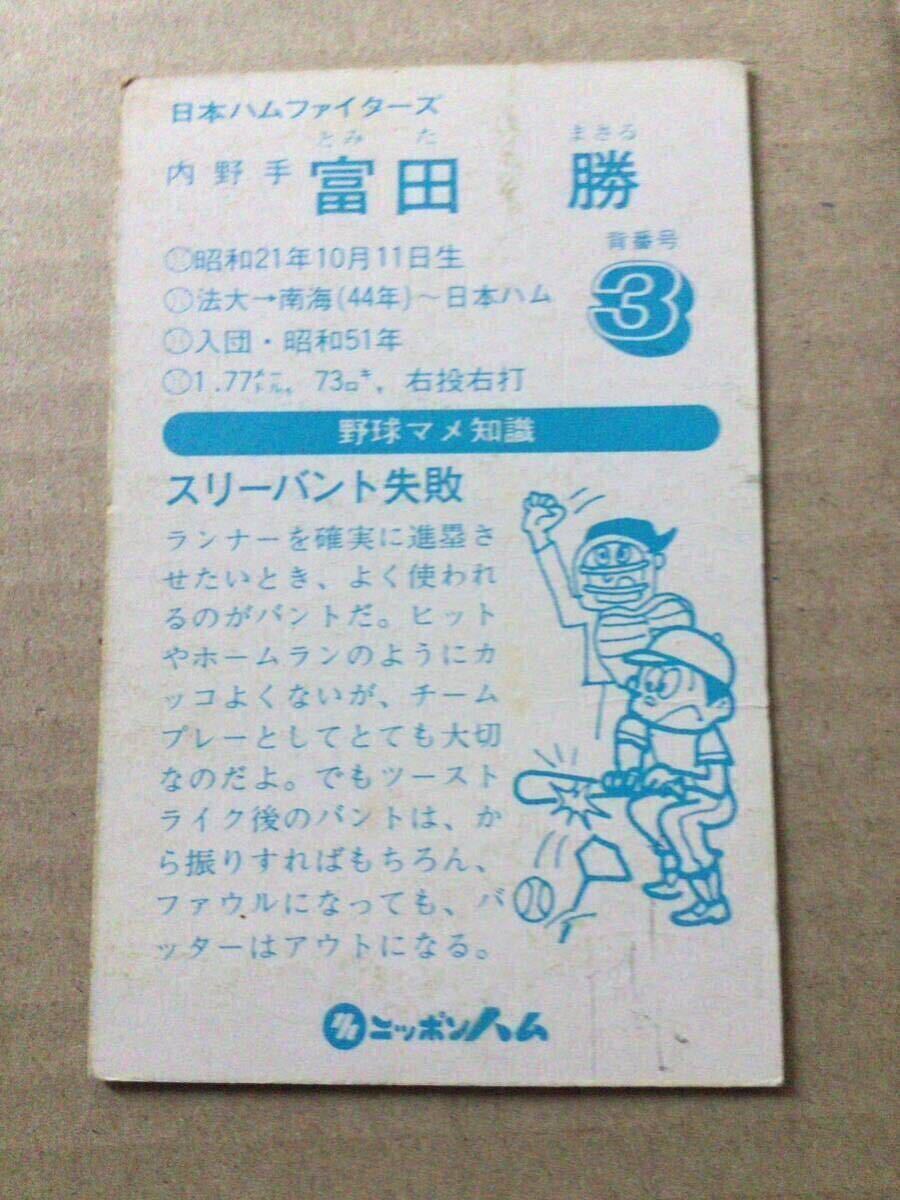 日本ハムファイターズ
とみ た まさる
内野手 富田 勝
背番号
3
昭和21年10月11日生
法大→南海(44年)~日本ハム
入団・昭和51年
1.77メートル、73キロ、右投右打
野球マメ知識
スリーバント失敗
ランナーを確実に進塁さ
せたいとき、よく使われ
るのがバントだ。ヒット
やホームランのようにカ
ッコよくないが、チーム
プレーとしてとても大切
なのだよ。でもツースト
ライク後のバントは、か
ら振りすればもちろん、
ファウルになっても、バ
ッターはアウトになる。
ニッポンハム